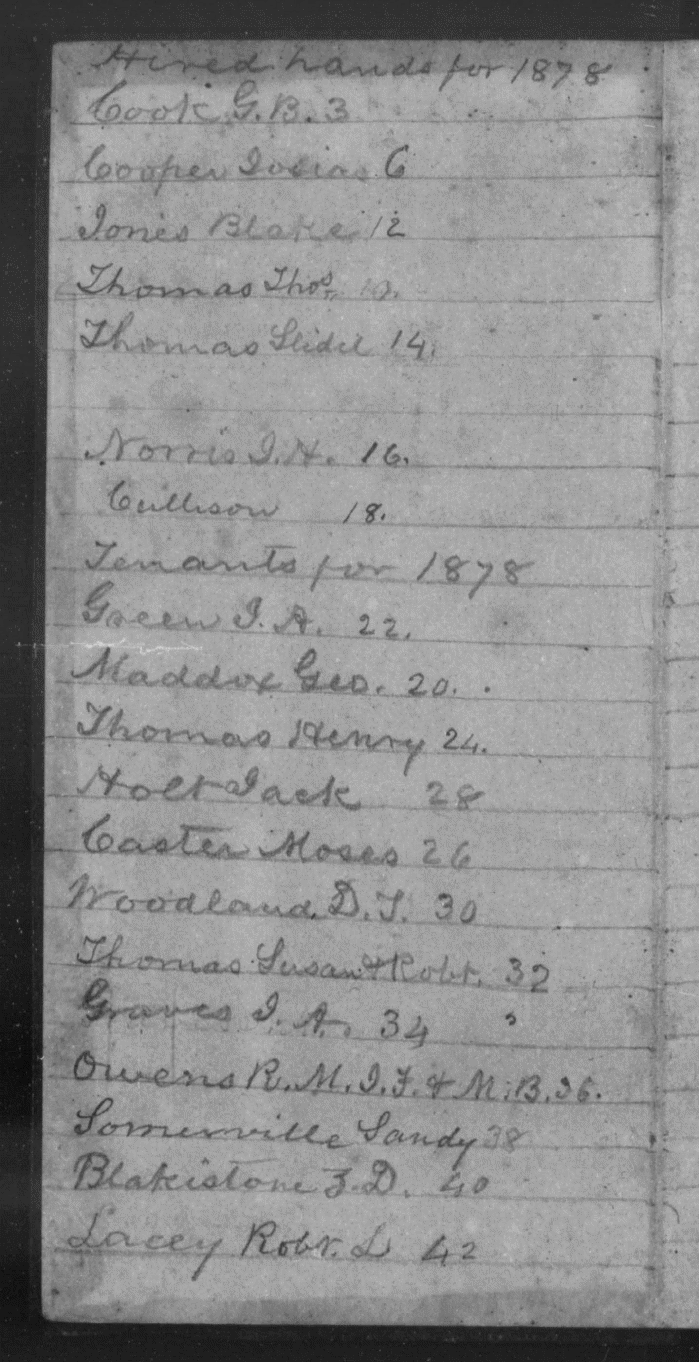 Hired hands for 1878
Cook G.B. 3
Cooper Josias 6
Jones Blake 12
Thomas Thos. 10.
Thomas Slidel 14.
Norris J.H. 16.
Cullison 18.
Tenants for 1878
Green J.A. 22.
Maddox Geo. 20.
Thomas Henry 24.
Holt Jack 28
Caster Moses 26
Woodland D.T. 30
Thomas Susan & Robt. 32
Graves J.A. 34
Owens R.M. J.F. & M.B. 36.
Somerville Sandy 38
Blakistone Z.D. 40
Lacey Robt. L 42